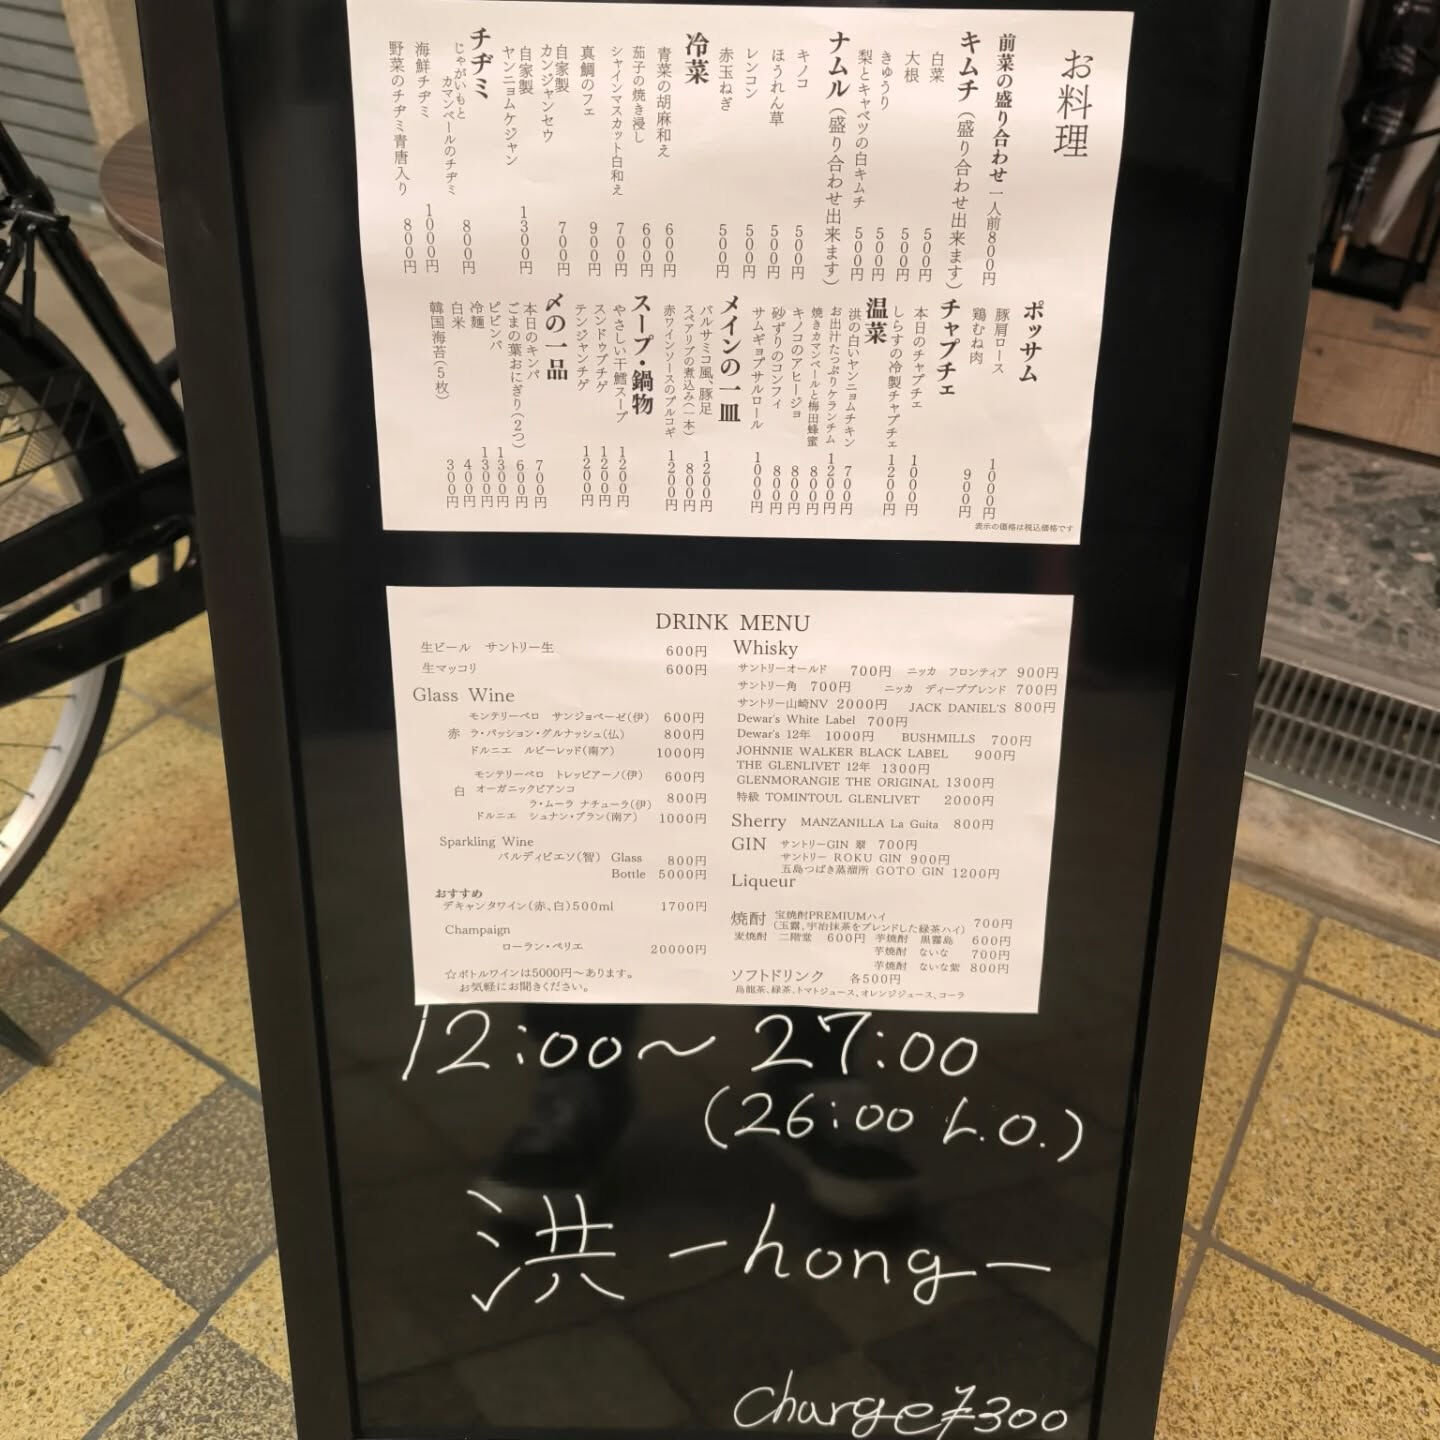 お料理
前菜の盛り合わせ 一人前800円
キムチ(盛り合わせ出来ます)
白菜 500円
大根 500円
きゅうり 500円
梨とキャベツの白キムチ 500円
ナムル(盛り合わせ出来ます)
キノコ 500円
ほうれん草 500円
レンコン 500円
赤玉ねぎ 500円
冷菜
青菜の胡麻和え 600円
茄子の焼き浸し 600円
シャインマスカット白和え 700円
真鯛のフェ 900円
自家製
カンジャンセウ 700円
自家製
ヤンニョムケジャン 1300円
チヂミ
じゃがいもと
カマンベールのチヂミ 800円
海鮮チヂミ 1000円
野菜のチヂミ青唐入り 800円
ポッサム
豚肩ロース 1000円
鶏むね肉 900円
チャプチェ
本日のチャプチェ 1000円
しらすの冷製チャプチェ 1200円
温菜
洪の白いヤンニョムチキン 700円
お出汁たっぷりケランチム 1200円
焼きカマンベールと梅田蜂蜜 800円
キノコのアヒージョ 800円
砂ずりのコンフィ 800円
サムギョプサルロール 1000円
メインの一皿
バルサミコ風、豚足 1200円
スペアリブの煮込み(一本) 800円
赤ワインソースのプルコギ 1200円
スープ・鍋物
やさしい干鱈スープ 1200円
スンドゥブチゲ 1200円
テンジャンチゲ 1200円
〆の一品
本日のキンパ 700円
ごまの葉おにぎり(2つ) 600円
ビビンバ 1300円
冷麺 1300円
白米 400円
韓国海苔(5枚) 300円
表示の価格は税込価格です
DRINK MENU
生ビール サントリー生 600円
生マッコリ 600円
Glass Wine
モンテリーベロ サンジョベーゼ(伊) 600円
赤 ラ・パッション・グルナッシュ(仏) 800円
ドルニエ ルビーレッド(南ア) 1000円
モンテリーベロ トレッビアーノ(伊) 600円
白 オーガニックビアンコ
ラ・ムーラ ナチューラ(伊) 800円
ドルニエ シュナン・ブラン(南ア) 1000円
Sparkling Wine
バルディビエソ(智) Glass 800円
Bottle 5000円
おすすめ
デキャンタワイン(赤、白)500ml 1700円
Champaign
ローラン・ペリエ 20000円
☆ボトルワインは5000円～あります。
お気軽にお聞きください。
Whisky
サントリーオールド 700円 ニッカ フロンティア 900円
サントリー角 700円 ニッカ ディープブレンド 700円
サントリー山崎NV 2000円 JACK DANIEL'S 800円
Dewar's White Label 700円
Dewar's 12年 1000円 BUSHMILLS 700円
JOHNNIE WALKER BLACK LABEL 900円
THE GLENLIVET 12年 1300円
GLENMORANGIE THE ORIGINAL 1300円
特級 TOMINTOUL GLENLIVET 2000円
Sherry MANZANILLA La Guita 800円
GIN サントリーGIN 翠 700円
サントリー ROKU GIN 900円
五島つばき蒸溜所 GOTO GIN 1200円
Liqueur
焼酎 宝焼酎PREMIUMハイ 700円
(玉露、宇治抹茶をブレンドした緑茶ハイ)
麦焼酎 二階堂 600円 芋焼酎 黒霧島 600円
芋焼酎 ないな 700円
芋焼酎 ないな紫 800円
ソフトドリンク 各500円
烏龍茶、緑茶、トマトジュース、オレンジジュース、コーラ
12:00～27:00
(26:00 L.O.)
洪 -hong-
Charge ¥300